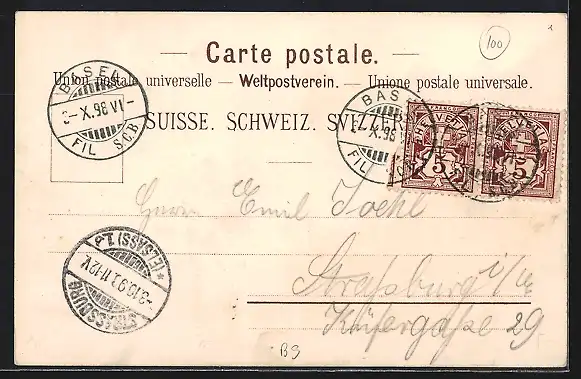 100
— Carte postale. —
Union postale universelle — Weltpostverein. — Unione postale universale.
SUISSE. SCHWEIZ. SVIZZERA
BASEL
X.98 VI –
FIL S.C.B.
BAS
X.98
FIL
HELVETIA
5
HELVETIA
5
Herrn Emil Joehl
Straßburg i/E
Küfergasse 29
STRASSBURG
* (ELSASS) 1
11-12V.
B9